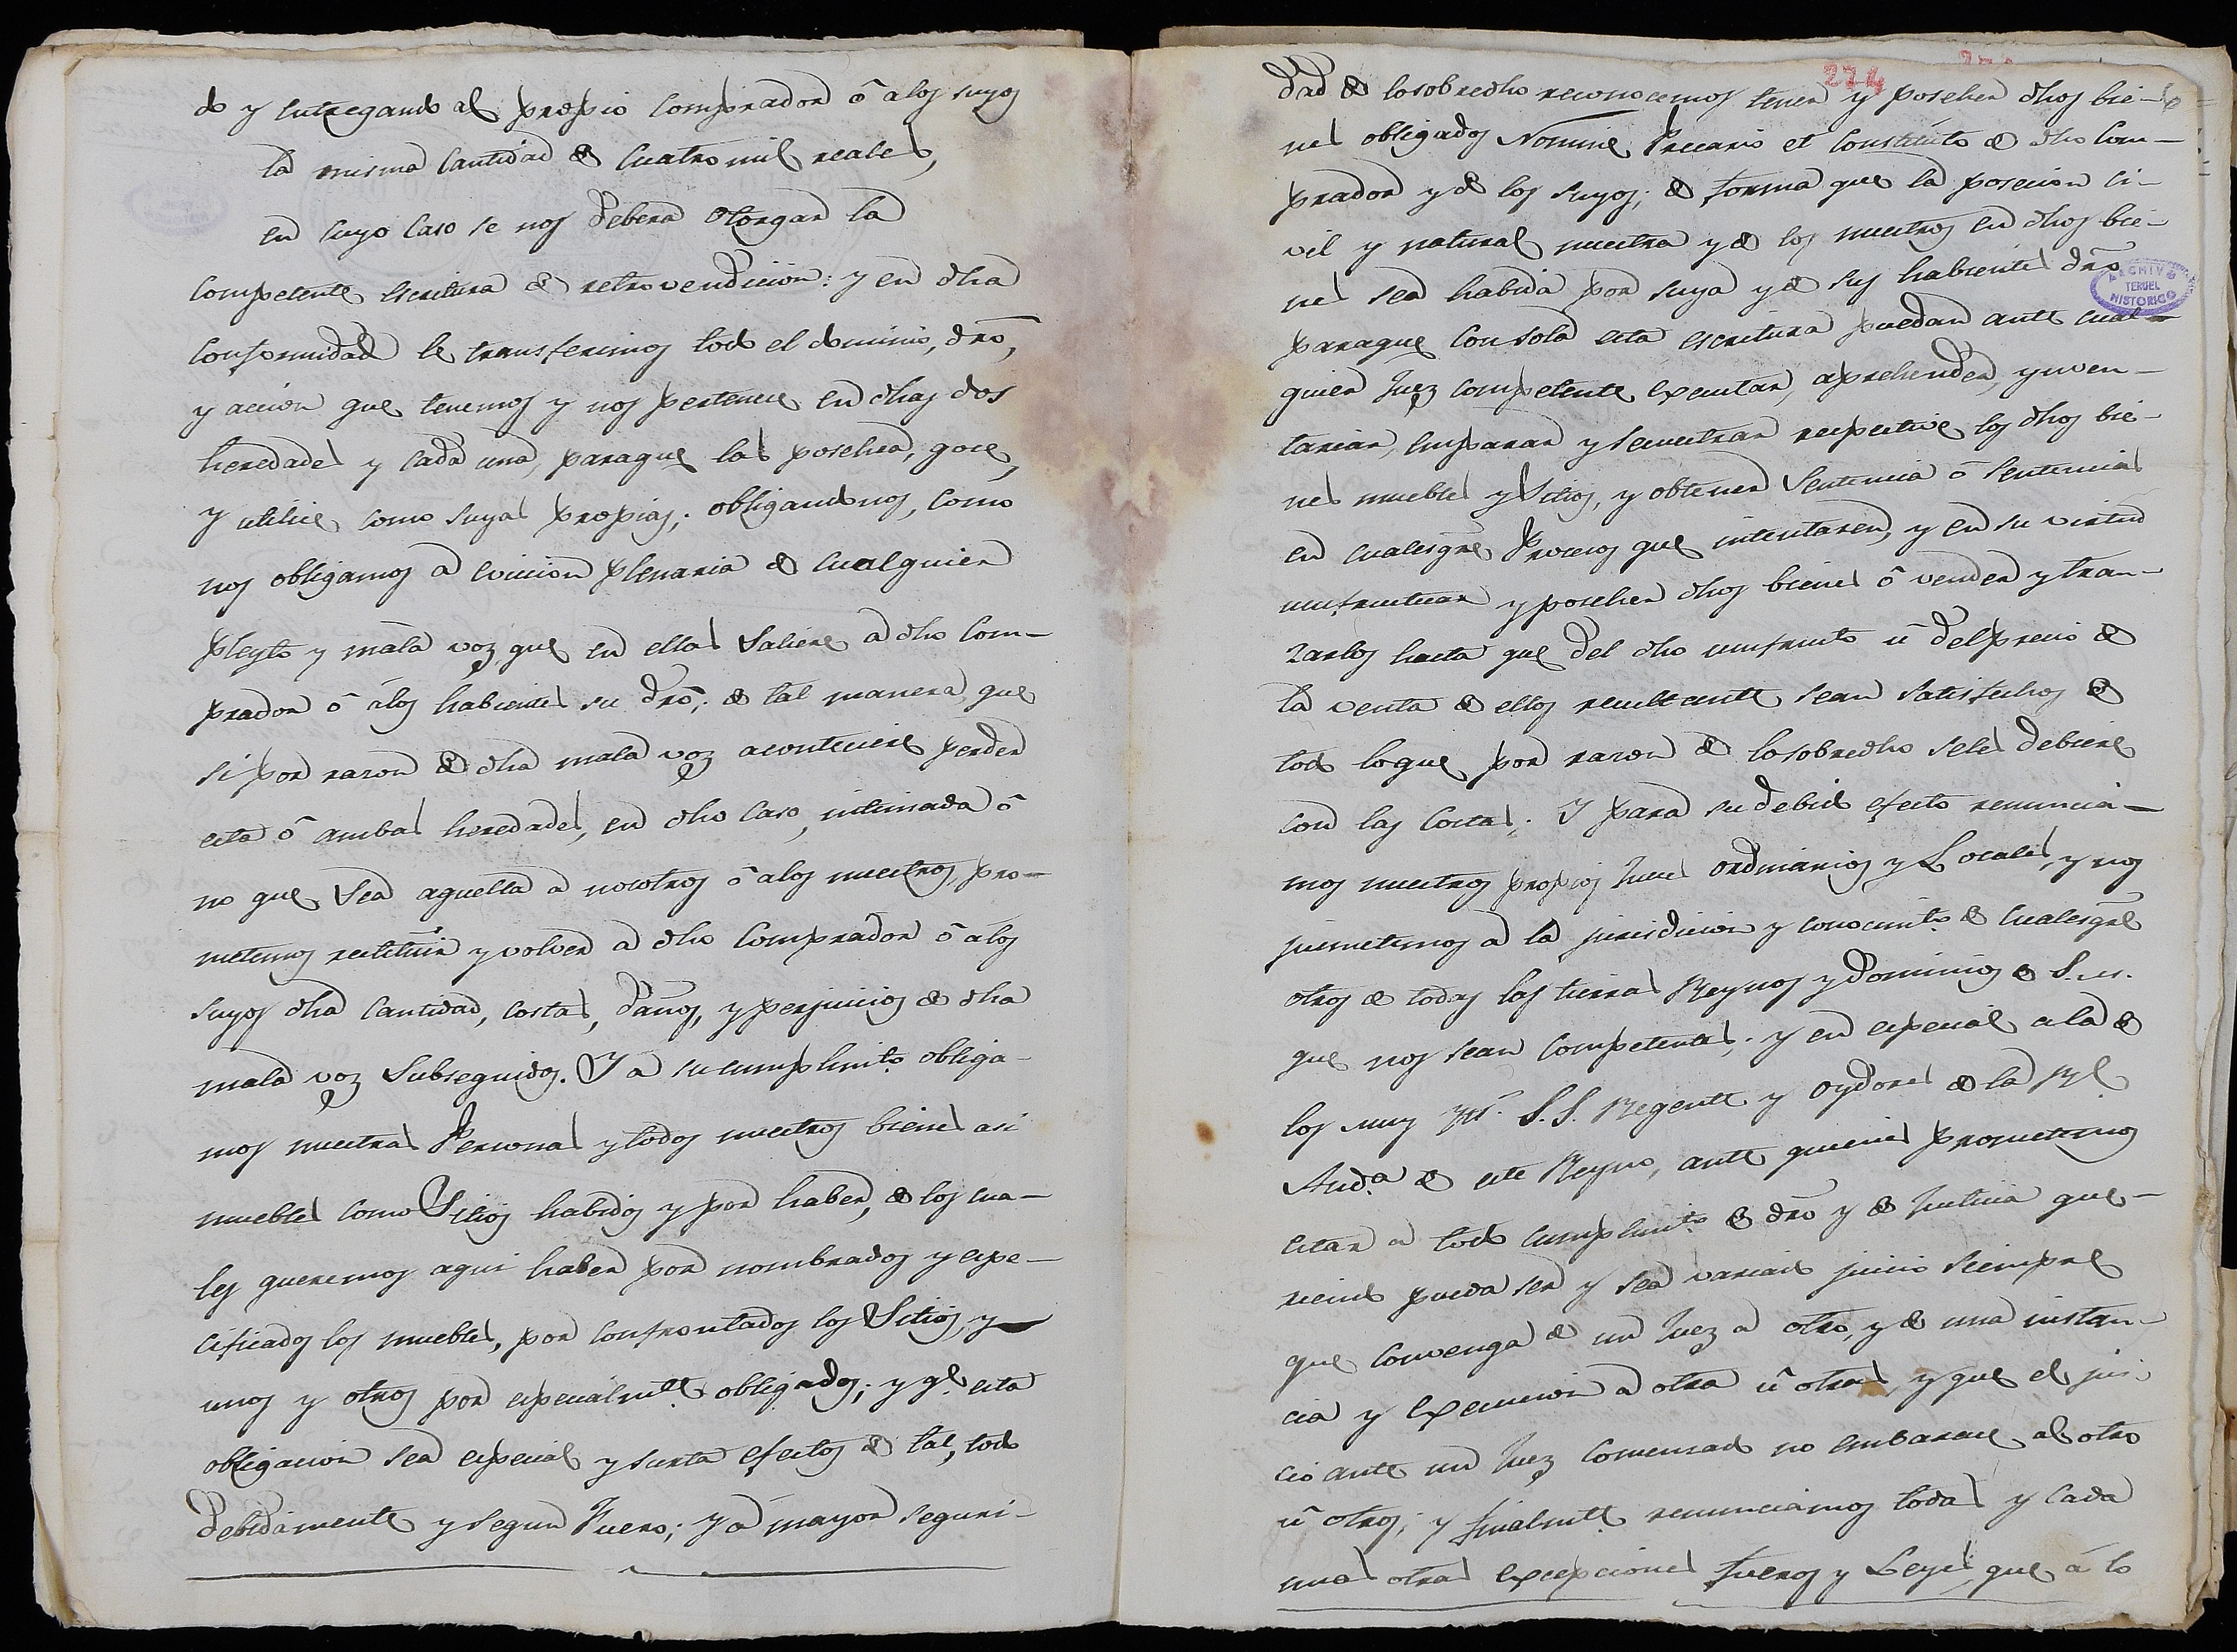 do y entregando al propio comprador ô alos suyos
la misma cantidad de cuatro mil reales,
en cuyo caso se nos debera otorgar la
competente escritura de retrovendicion: y en dha
conformidad le transferimos todo el dominio, dro,
y accion que tenemos y nos pertenece en dhas dos
heredades y cada una, paraque las posehea, goce,
y utilice como suyas propias; obligandonos, como
nos obligamos a eviccion plenaria de cualquier
pleyto y mala voz que en ellas saliere a dho com-
prador ô álos habientes su dro; de tal manera que
si por razon de dha mala voz aconteciere perder
esta ô ambas heredades, en dho caso, intimada ô
no que sea aquella a nosotros ô alos nuestros, pro-
metemos restituir y volver a dho comprador ô alos
suyos dha cantidad, costas, daños, y perjuicios de dha
mala voz subseguidos. Y a su cumplimto. obliga-
mos nuestras Personas y todos nuestros bienes asi
muebles como Sitios habidos y por haber, de los cua-
les queremos aqui haber por nombrados y espe-
cificados los muebles, por confrontados los Sitios, y
unos y otros por especialmte. obligados; y qe. esta
obligacion sea especial y surta efectos de tal, todo
debidamente y segun Fuero; y á mayor seguri-
224
dad de losobredho reconocemos tener y poseher dhos bie-
nes obligados Nomine Precario et Constituto de dho com-
prador y de los suyos; de forma que la posecion ci-
vil y natural nuestra y de los nuestros en dhos bie-
nes sea habida por suya y de sus habientes dro
paraque con sola esta escritura puedan ante cual-
quier Juez competente executar, aprehender, ynven-
tariar, emparar y secuestrar respective los dhos bie-
nes muebles y Sitios, y obtener Sentencia ô Sentencias
en cualesqre. Procesos que intentaren, y en su virtud
usufructuar y poseher dhos bienes ô vender y tran-
zarlos hasta que del dho usufruto û del precio de
la venta de ellos resultante sean satisfechos de
todo loque por razon de losobredho seles debiere
con las costas. Y para su debido efecto renuncia-
mos nuestros propios Jueces ordinarios y Locales, y nos
jusmetemos a la jurisdicion y conocimto. de cualesqre
otros de todas las tierras Reynos y Dominios de S.M.
que nos sean competentes; y en especial a la de
los muy Ylls. S.S. Regente y oydores de la Rl.
Auda. de este Reyno, ante quienes prometemos
estar a todo cumplimto. de dro y de Justicia que-
riendo pueda ser y sea variado juicio siempre
que convenga de un Juez a otro, y de una instan-
cia y execucion a otra û otras, y que el jui-
cio ante un Juez comenzado no embarace al otro
û otros; y finalmte. renunciamos todas y cada
unas otras excepciones fueros y Leyes que á lo
ARCHIVO
TERUEL
HISTORICO